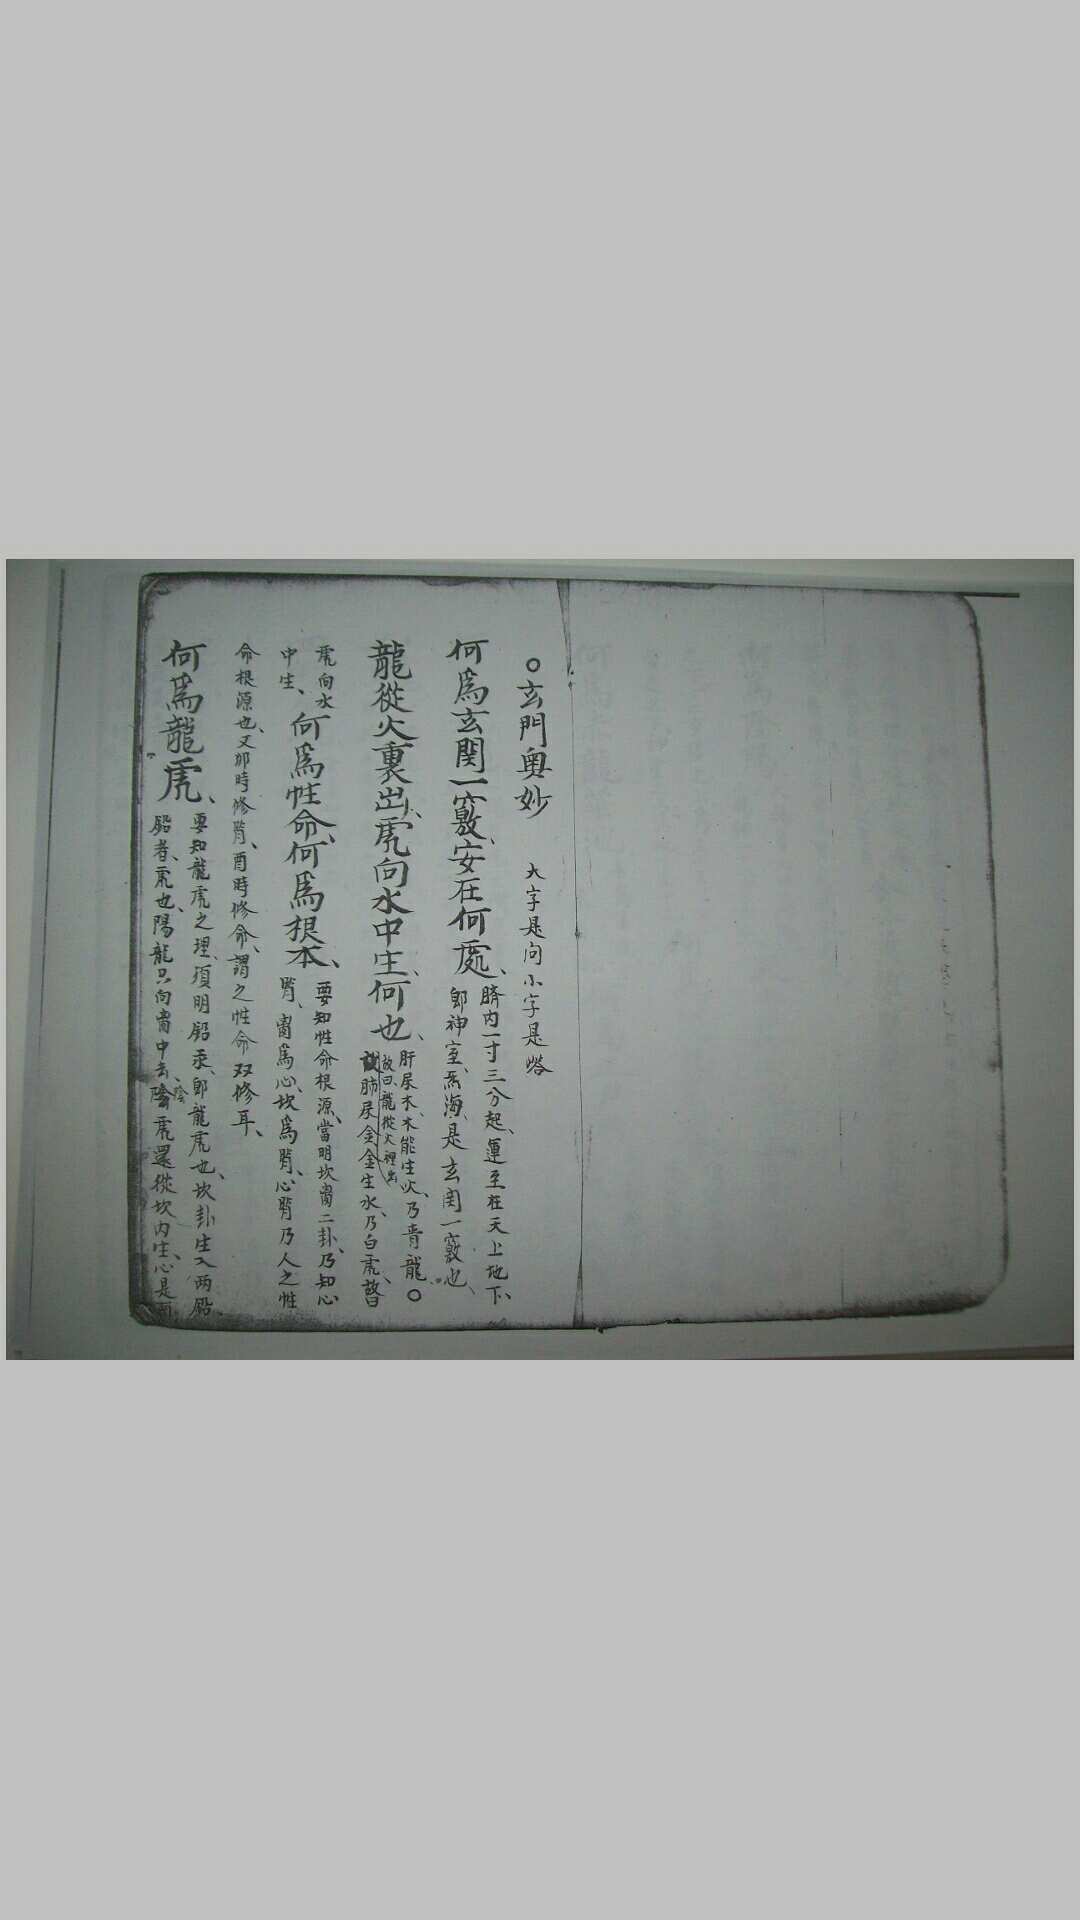 ○玄門奧妙 大字是问小字是答
何爲玄関一竅、安在何處、
臍内一寸三分起、運至在天上地下、
即神室、炁海、是玄関一竅也、
龍從火裏出、虎向水中生、何也、
肝屬木、木能生火、乃青龍。
故曰龍從火裡出
肺屬金、金生水、乃白虎、
虎向水
中生、
何爲性命、何爲根本、
要知性命根源、當明坎离二卦、乃知心
腎、离爲心、坎爲腎、心腎乃人之性
命根源也、又卯時修腎、酉時修命、謂之性命双修耳、
何爲龍虎、
要知龍虎之理、須明鉛汞、即龍虎也、坎卦生入两鉛、
鉛者、虎也、陽龍只向离中去、陰虎還從坎内生、心是